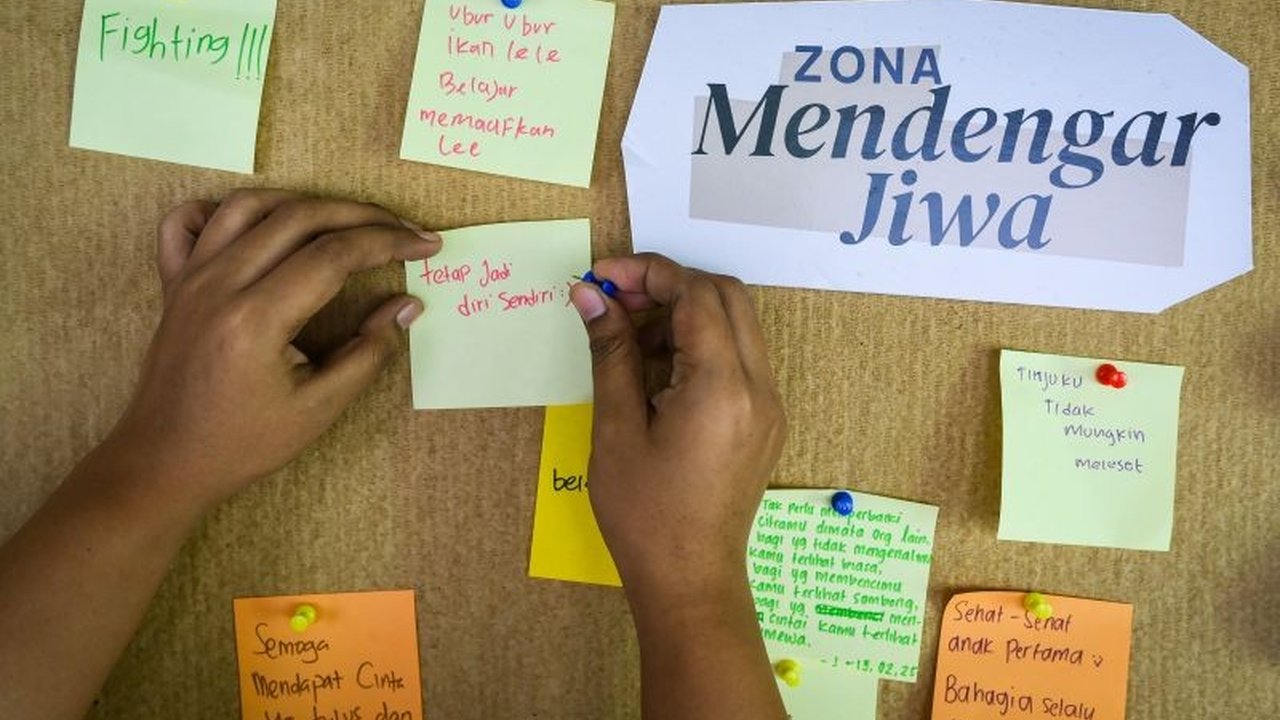 Fighting!!!
Ubur Ubur
ikan lele
Belajar
memaafkan
Lee
ZONA
Mendengar
Jiwa
tetap Jadi
diri Sendiri :)
Tinjuku
Tidak
Mungkin
meleset
Tak perlu memperbaiki
Citramu dimata org lain,
bagi yg tidak mengenalmu
kamu terlihat biasa,
bagi yg membencimu
kamu terlihat sombong,
bagi yg men-
cintai kamu terlihat
- J - 13, 02, 25
Semoga
Mendapat Cinta
tulus dan
Sehat - Sehat
anak Pertama
Bahagia selalu